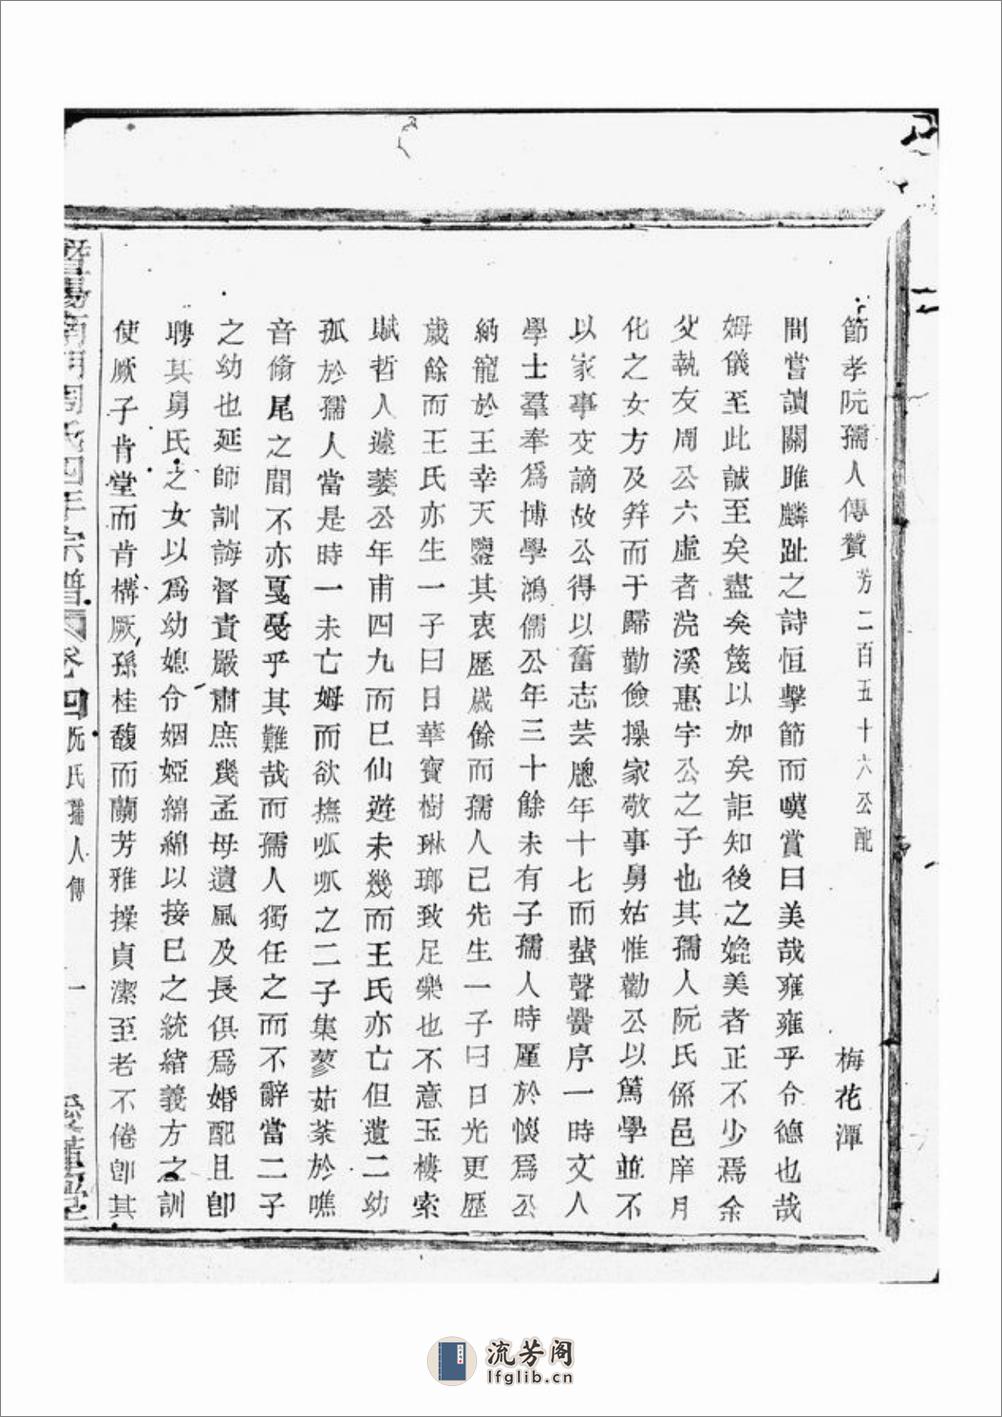 節孝阮孺人傳贊 芳二百五十六公配 梅花潭
間嘗讀關雎麟趾之詩恒擊節而嘆賞曰美哉雍雍乎令德也哉
姆儀至此誠至矣盡矣篾以加矣詎知後之媲美者正不少焉余
父執友周公六虛者浣溪惠宇公之子也其孺人阮氏係邑庠月
化之女方及筓而于歸勤儉操家敬事舅姑惟勸公以篤學並不
以家事交謫故公得以奮志芸牕年十七而蜚聲黌序一時文人
學士羣奉爲博學鴻儒公年三十餘未有子孺人時厪於懷爲公
納寵於王幸天鑒其衷歷歲餘而孺人己先生一子曰日光更歷
歲餘而王氏亦生一子曰日華寳樹琳瑯致足樂也不意玉樓索
賦哲人遽萎公年甫四九而巳仙遊未幾而王氏亦亡但遺二幼
孤於孺人當是時一未亡姆而欲撫呱呱之二子集蓼茹荼於噍
音翛尾之間不亦戛戛乎其難哉而孺人獨任之而不辭當二子
之幼也延師訓誨督責嚴肅庶幾孟母遺風及長俱爲婚配且卽
聘其舅氏之女以爲幼媳令姻婭綿綿以接巳之統緒義方之訓
使厥子肯堂而肯構厥孫桂馥而蘭芳雅操貞潔至老不倦卽其
暨陽南門周氏四年宗譜 卷四 阮氏孺人傳 一 愛蓮堂
流芳阁
lfglib.cn